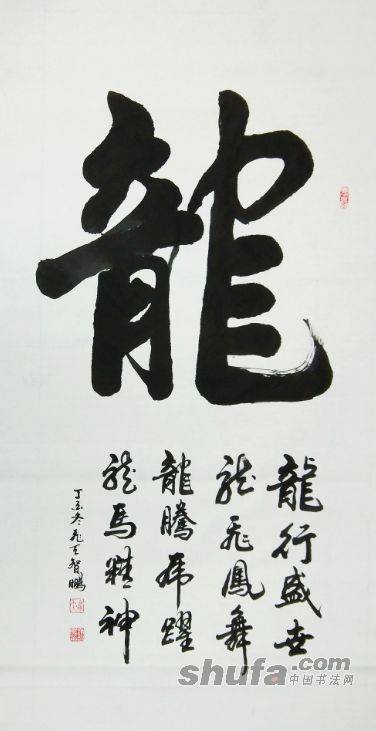 龍
龍行盛世
龙飛鳳舞
龍騰虎躍
龙馬精神
丁亥冬飛天智鵬
shufa.com
中国书法网